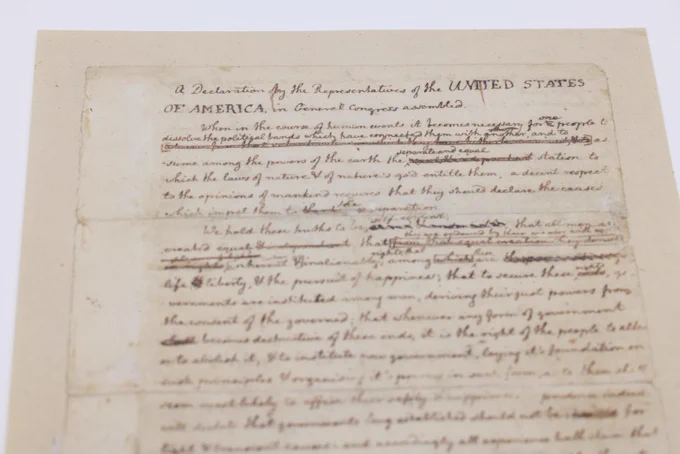 A Declaration by the Representatives of the UNITED STATES
OF AMERICA, in General Congress assembled.
When in the course of human events it becomes necessary for one people to
dissolve the political bands which have connected them with another, and to
-sume among the powers of the earth the separate and equal station to
which the laws of nature & of nature's god entitle them, a decent respect
to the opinions of mankind requires that they should declare the causes
which impel them to the separation.
We hold these truths to be self-evident, that all men are
created equal that they are endowed by their creator with
inherent & inalienable rights that among these are
life liberty, & the pursuit of happiness; that to secure these rights, go
vernments are instituted among men, deriving their just powers from
the consent of the governed; that whenever any form of government
becomes destructive of these ends, it is the right of the people to alter
or to abolish it, & to institute new government, laying it's foundation on
such principles & organising it's powers in such form, as to them shall
seem most likely to effect their safety & happiness. prudence indeed
will dictate that governments long established should not be for
light & transient causes: and accordingly all experience hath shewn that